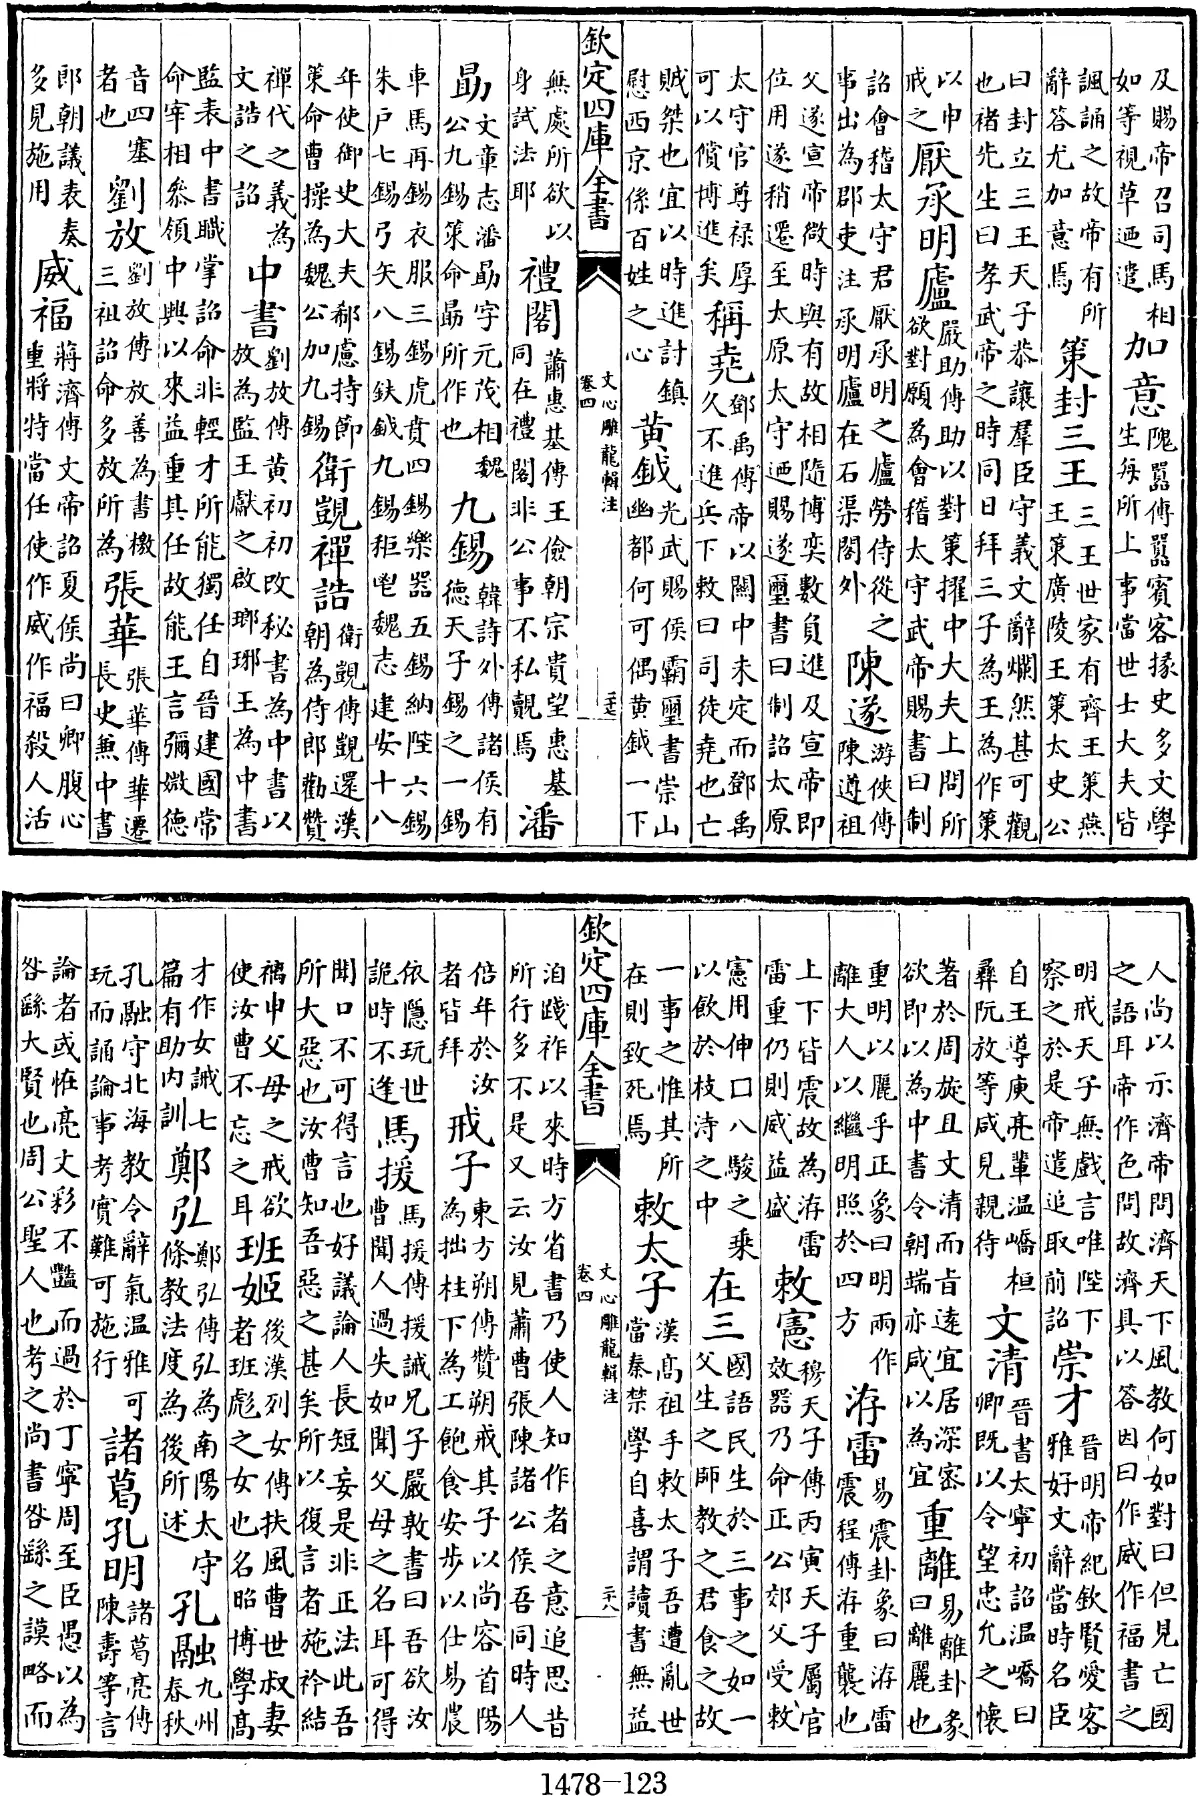 及賜帝召司馬相如等視草迺遣加意隗囂傳囂賓客掾史多文學生每所上事當世士大夫皆
諷誦之故帝有所辭答尤加意焉策封三王三王世家有齊王策燕王策廣陵王策太史公
曰封立三王天子恭讓羣臣守義文辭爛然甚可觀也褚先生曰孝武帝之時同日拜三子為王為作策
以申戒之厭承明廬嚴助傳助以對策擢中大夫上問所欲對願為會稽太守武帝賜書曰制
詔會稽太守君厭承明之廬勞侍從之事出為郡吏注承明廬在石渠閣外陳遂游俠傳陳遵祖
父遂宣帝微時與有故相隨博奕數負進及宣帝即位用遂稍遷至太原太守迺賜遂璽書曰制詔太原
太守官尊禄厚可以償博進矣稱堯鄧禹傳帝以關中未定而鄧禹久不進兵下敕曰司徒堯也亡
賊桀也宜以時進討鎮慰西京係百姓之心黄鉞光武賜侯霸璽書崇山幽都何可偶黄鉞一下
欽定四庫全書 文心雕龍輯注 卷四 二十七
無處所欲以身試法耶禮閣蕭惠基傳王儉朝宗貴望惠基同在禮閣非公事不私覿焉潘
勗文章志潘勗字元茂相魏公九錫策命勗所作也九錫韓詩外傳諸侯有德天子錫之一錫
車馬再錫衣服三錫虎賁四錫樂器五錫納陛六錫朱戶七錫弓矢八錫鈇鉞九錫秬鬯魏志建安十八
年使御史大夫郗慮持節策命曹操為魏公加九錫衛覬禪誥衛覬傳覬還漢朝為侍郎勸贊
禪代之義為文誥之詔中書劉放傳黄初初改秘書為中書以放為監王獻之啟瑯琊王為中書
監表中書職掌詔命非輕才所能獨任自晉建國常命宰相參領中興以來益重其任故能王言彌徽德
音四塞者也劉放劉放傳放善為書檄三祖詔命多放所為張華張華傳華遷長史兼中書
郎朝議表奏多見施用威福蔣濟傳文帝詔夏侯尚曰卿腹心重將特當任使作威作福殺人活
人尚以示濟帝問濟天下風教何如對曰但見亡國之語耳帝作色問故濟具以答因曰作威作福書之
明戒天子無戲言唯陛下察之於是帝遣追取前詔崇才晉明帝紀欽賢愛客雅好文辭當時名臣
自王導庾亮輩温嶠桓彛阮放等咸見親待文清晉書太寧初詔温嶠曰卿既以令望忠允之懷
著於周旋且文清而旨遠宜居深密欲即以為中書令朝端亦咸以為宜重離易離卦彖曰離麗也
重明以麗乎正象曰明兩作離大人以繼明照於四方洊雷易震卦象曰洊雷震程傳洊重襲也
上下皆震故為洊雷雷重仍則威益盛敕憲穆天子傳丙寅天子屬官效器乃命正公郊父受敕
憲用伸囗八駿之乘以飲於枝洔之中在三國語民生於三事之如一父生之師教之君食之故
一事之惟其所在則致死焉敕太子漢高祖手敕太子吾遭亂世當秦禁學自喜謂讀書無益
欽定四庫全書 文心雕龍輯注 卷四 二十八
洎踐祚以來時方省書乃使人知作者之意追思昔所行多不是又云汝見蕭曹張陳諸公侯吾同時人
倍年於汝者皆拜戒子東方朔傳贊朔戒其子以尚容首陽為拙柱下為工飽食安步以仕易農
依隱玩世詭時不逢馬援馬援傳援誡兄子嚴敦書曰吾欲汝曹聞人過失如聞父母之名耳可得
聞口不可得言也好議論人長短妄是非正法此吾所大惡也汝曹知吾惡之甚矣所以復言者施衿結
褵申父母之戒欲使汝曹不忘之耳班姬後漢列女傳扶風曹世叔妻者班彪之女也名昭博學高
才作女誡七篇有助内訓鄭弘鄭弘傳弘為南陽太守條教法度為後所述孔融九州春秋
孔融守北海教令辭氣温雅可玩而誦論事考實難可施行諸葛孔明諸葛亮傳陳壽等言
論者或怪亮文彩不豔而過於丁寧周至臣愚以為咎繇大賢也周公聖人也考之尚書咎繇之謨略而
1478—123